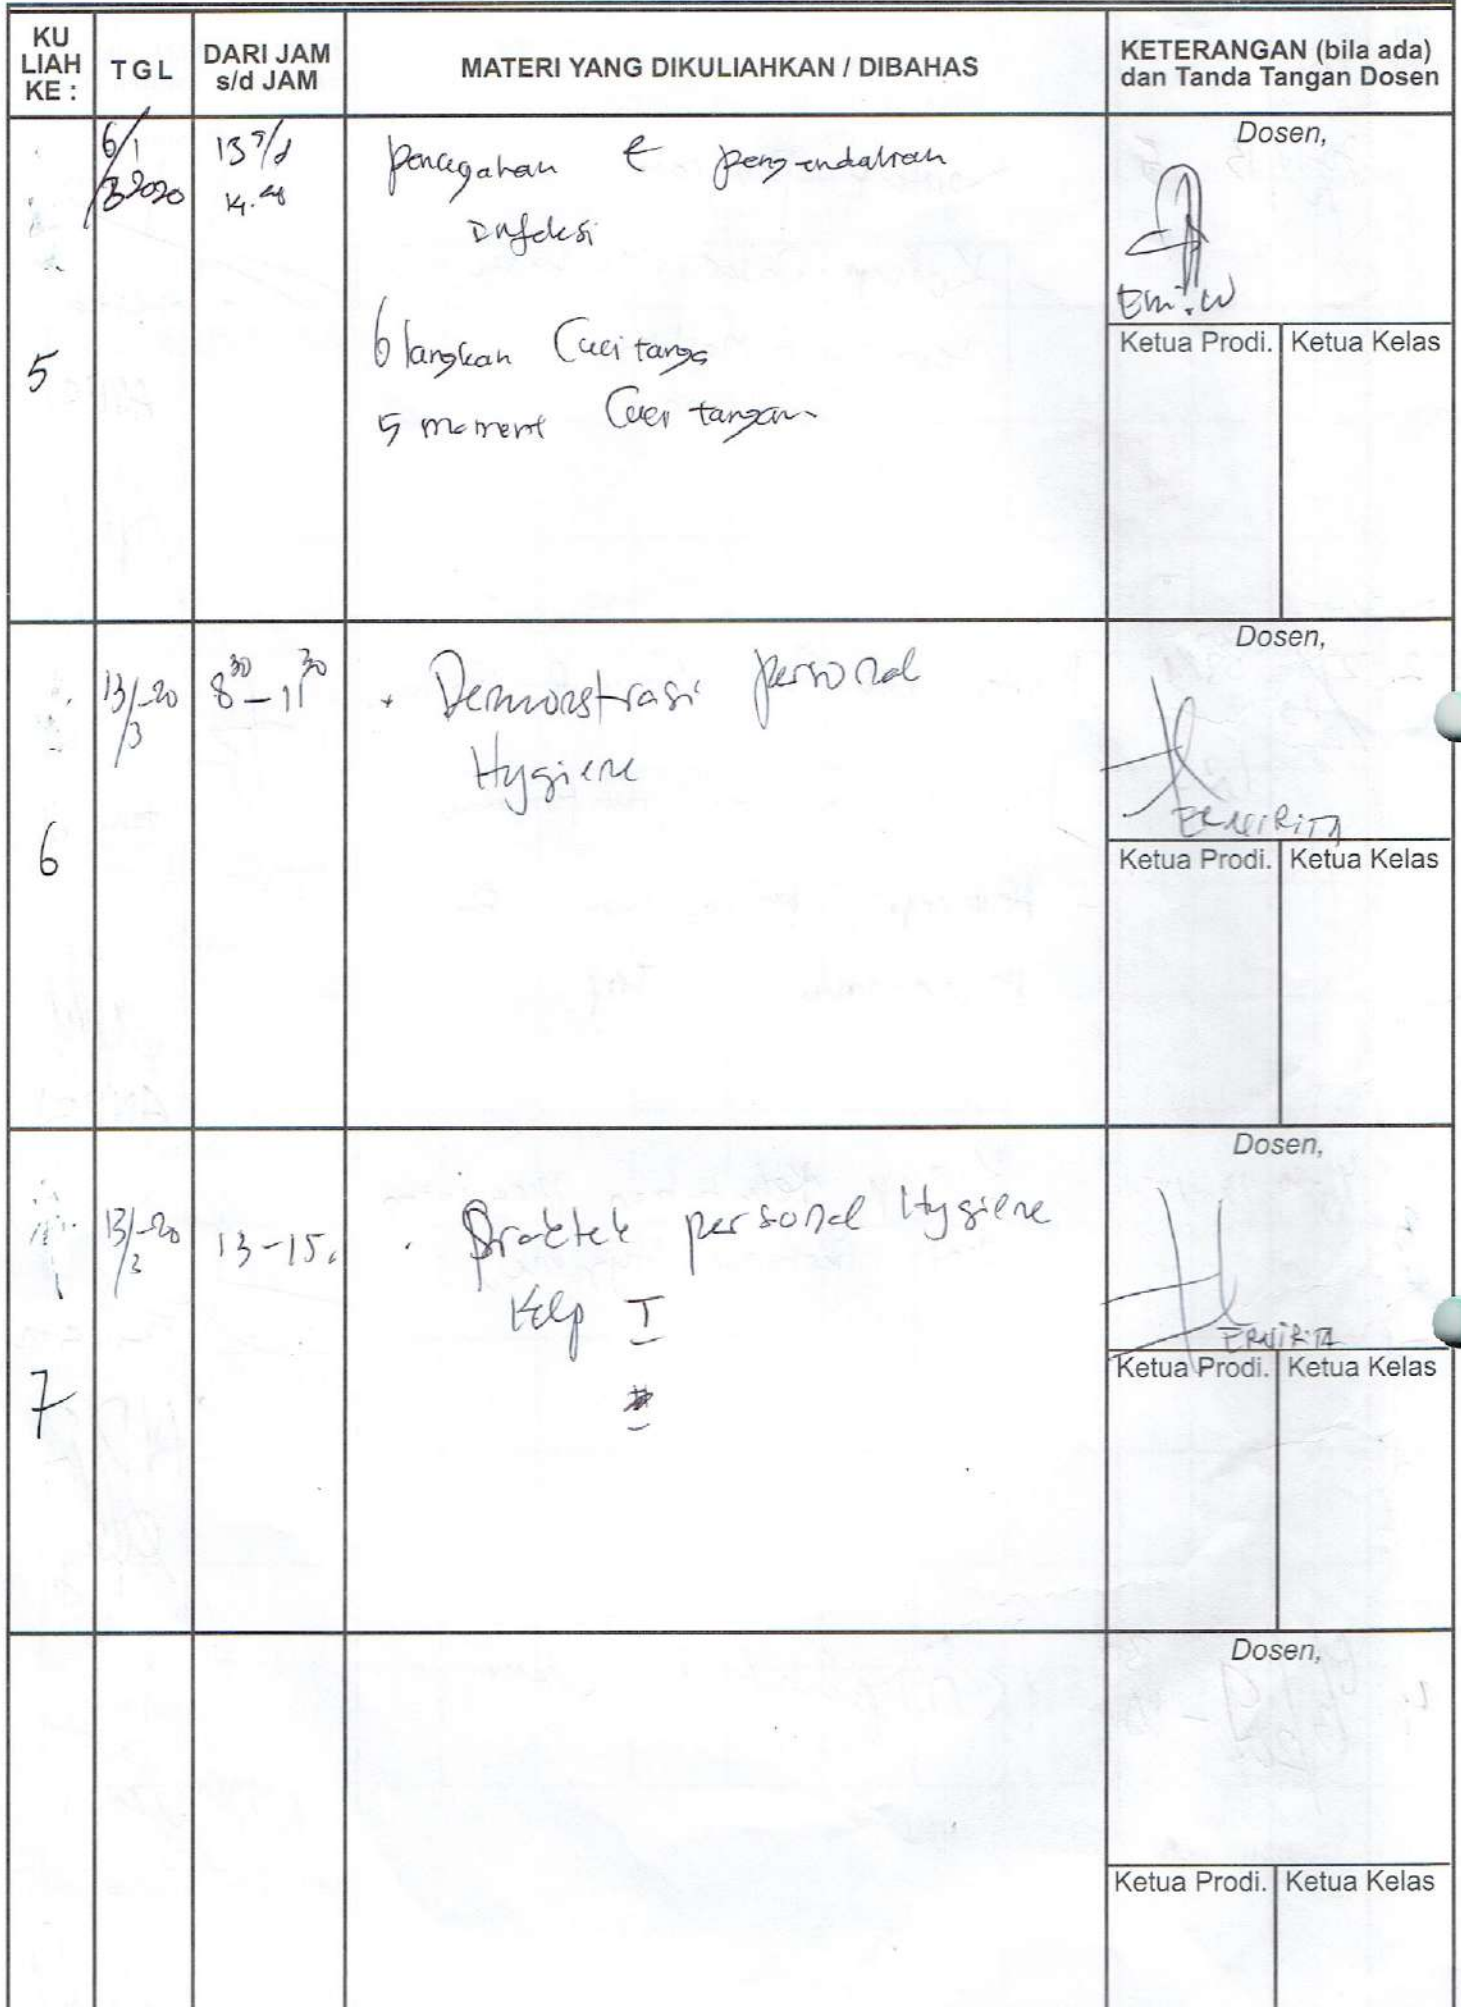 KU LIAH KE :
TGL
DARI JAM s/d JAM
MATERI YANG DIKULIAHKAN / DIBAHAS
KETERANGAN (bila ada) dan Tanda Tangan Dosen
5
6/
3 2020
13 s/d
pencegahan & pengendalian
Infeksi
6 langkah Cuci tanga
5 moment Cuci tangan
Dosen,
Ketua Prodi.
Ketua Kelas
6
13/3-20
8³⁰-11³⁰
Demonstrasi personal
Hygiene
Dosen,
ERNIRITA
Ketua Prodi.
Ketua Kelas
7
13/3-20
13-15.
Praktek personal Hygiene
Kelp I
Dosen,
ERNIRITA
Ketua Prodi.
Ketua Kelas
Dosen,
Ketua Prodi.
Ketua Kelas